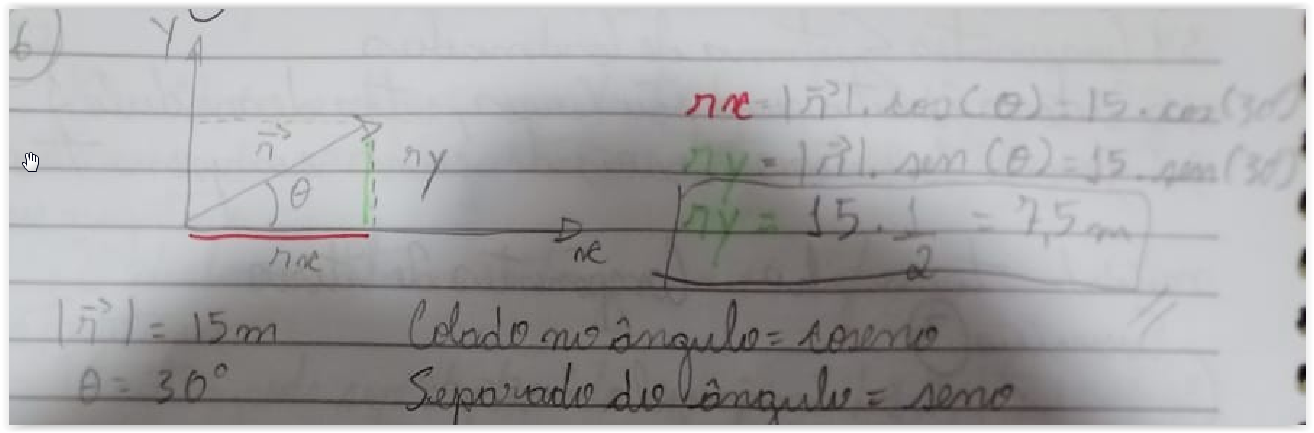 6)
Y
r⃗
θ
ry
rx
x
rx = |r⃗|. cos(θ) = 15. cos(30)
ry = |r⃗|. sen(θ) = 15. sen(30)
ry = 15 . 1/2 = 7,5 m
|r⃗| = 15 m
θ = 30°
Colado no ângulo = coseno
Separado do ângulo = seno